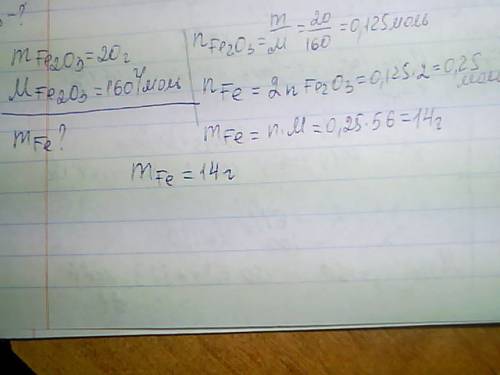 -?
m Fe₂O₃ = 20г
M Fe₂O₃ = 160 г/моль
m Fe ?
n Fe₂O₃ = m/M = 20/160 = 0,125 моль
n Fe = 2n Fe₂O₃ = 0,125 · 2 = 0,25 моль
m Fe = n · M = 0,25 · 56 = 14г
m Fe = 14г